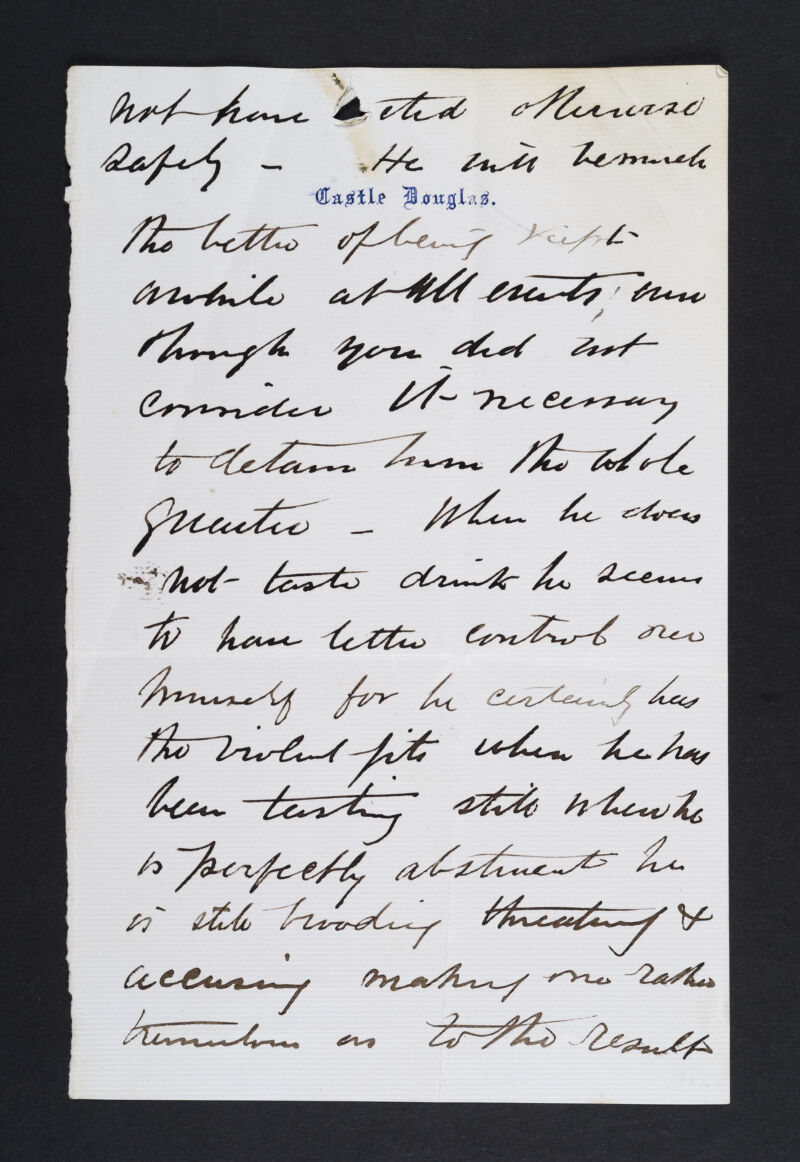 not have acted otherwise
safely – He will be much
Castle Douglas.
the better of being kept
awhile at all events, even
though you did not
consider it necessary
to detain him the whole
quarter – When he does
not taste drink he seems
to have better control over
himself for he certainly has
the violent fits when he has
been tasting still when he
is perfectly abstinent he
is still brooding threatning &
accusing making one rather
tremulous as to the result